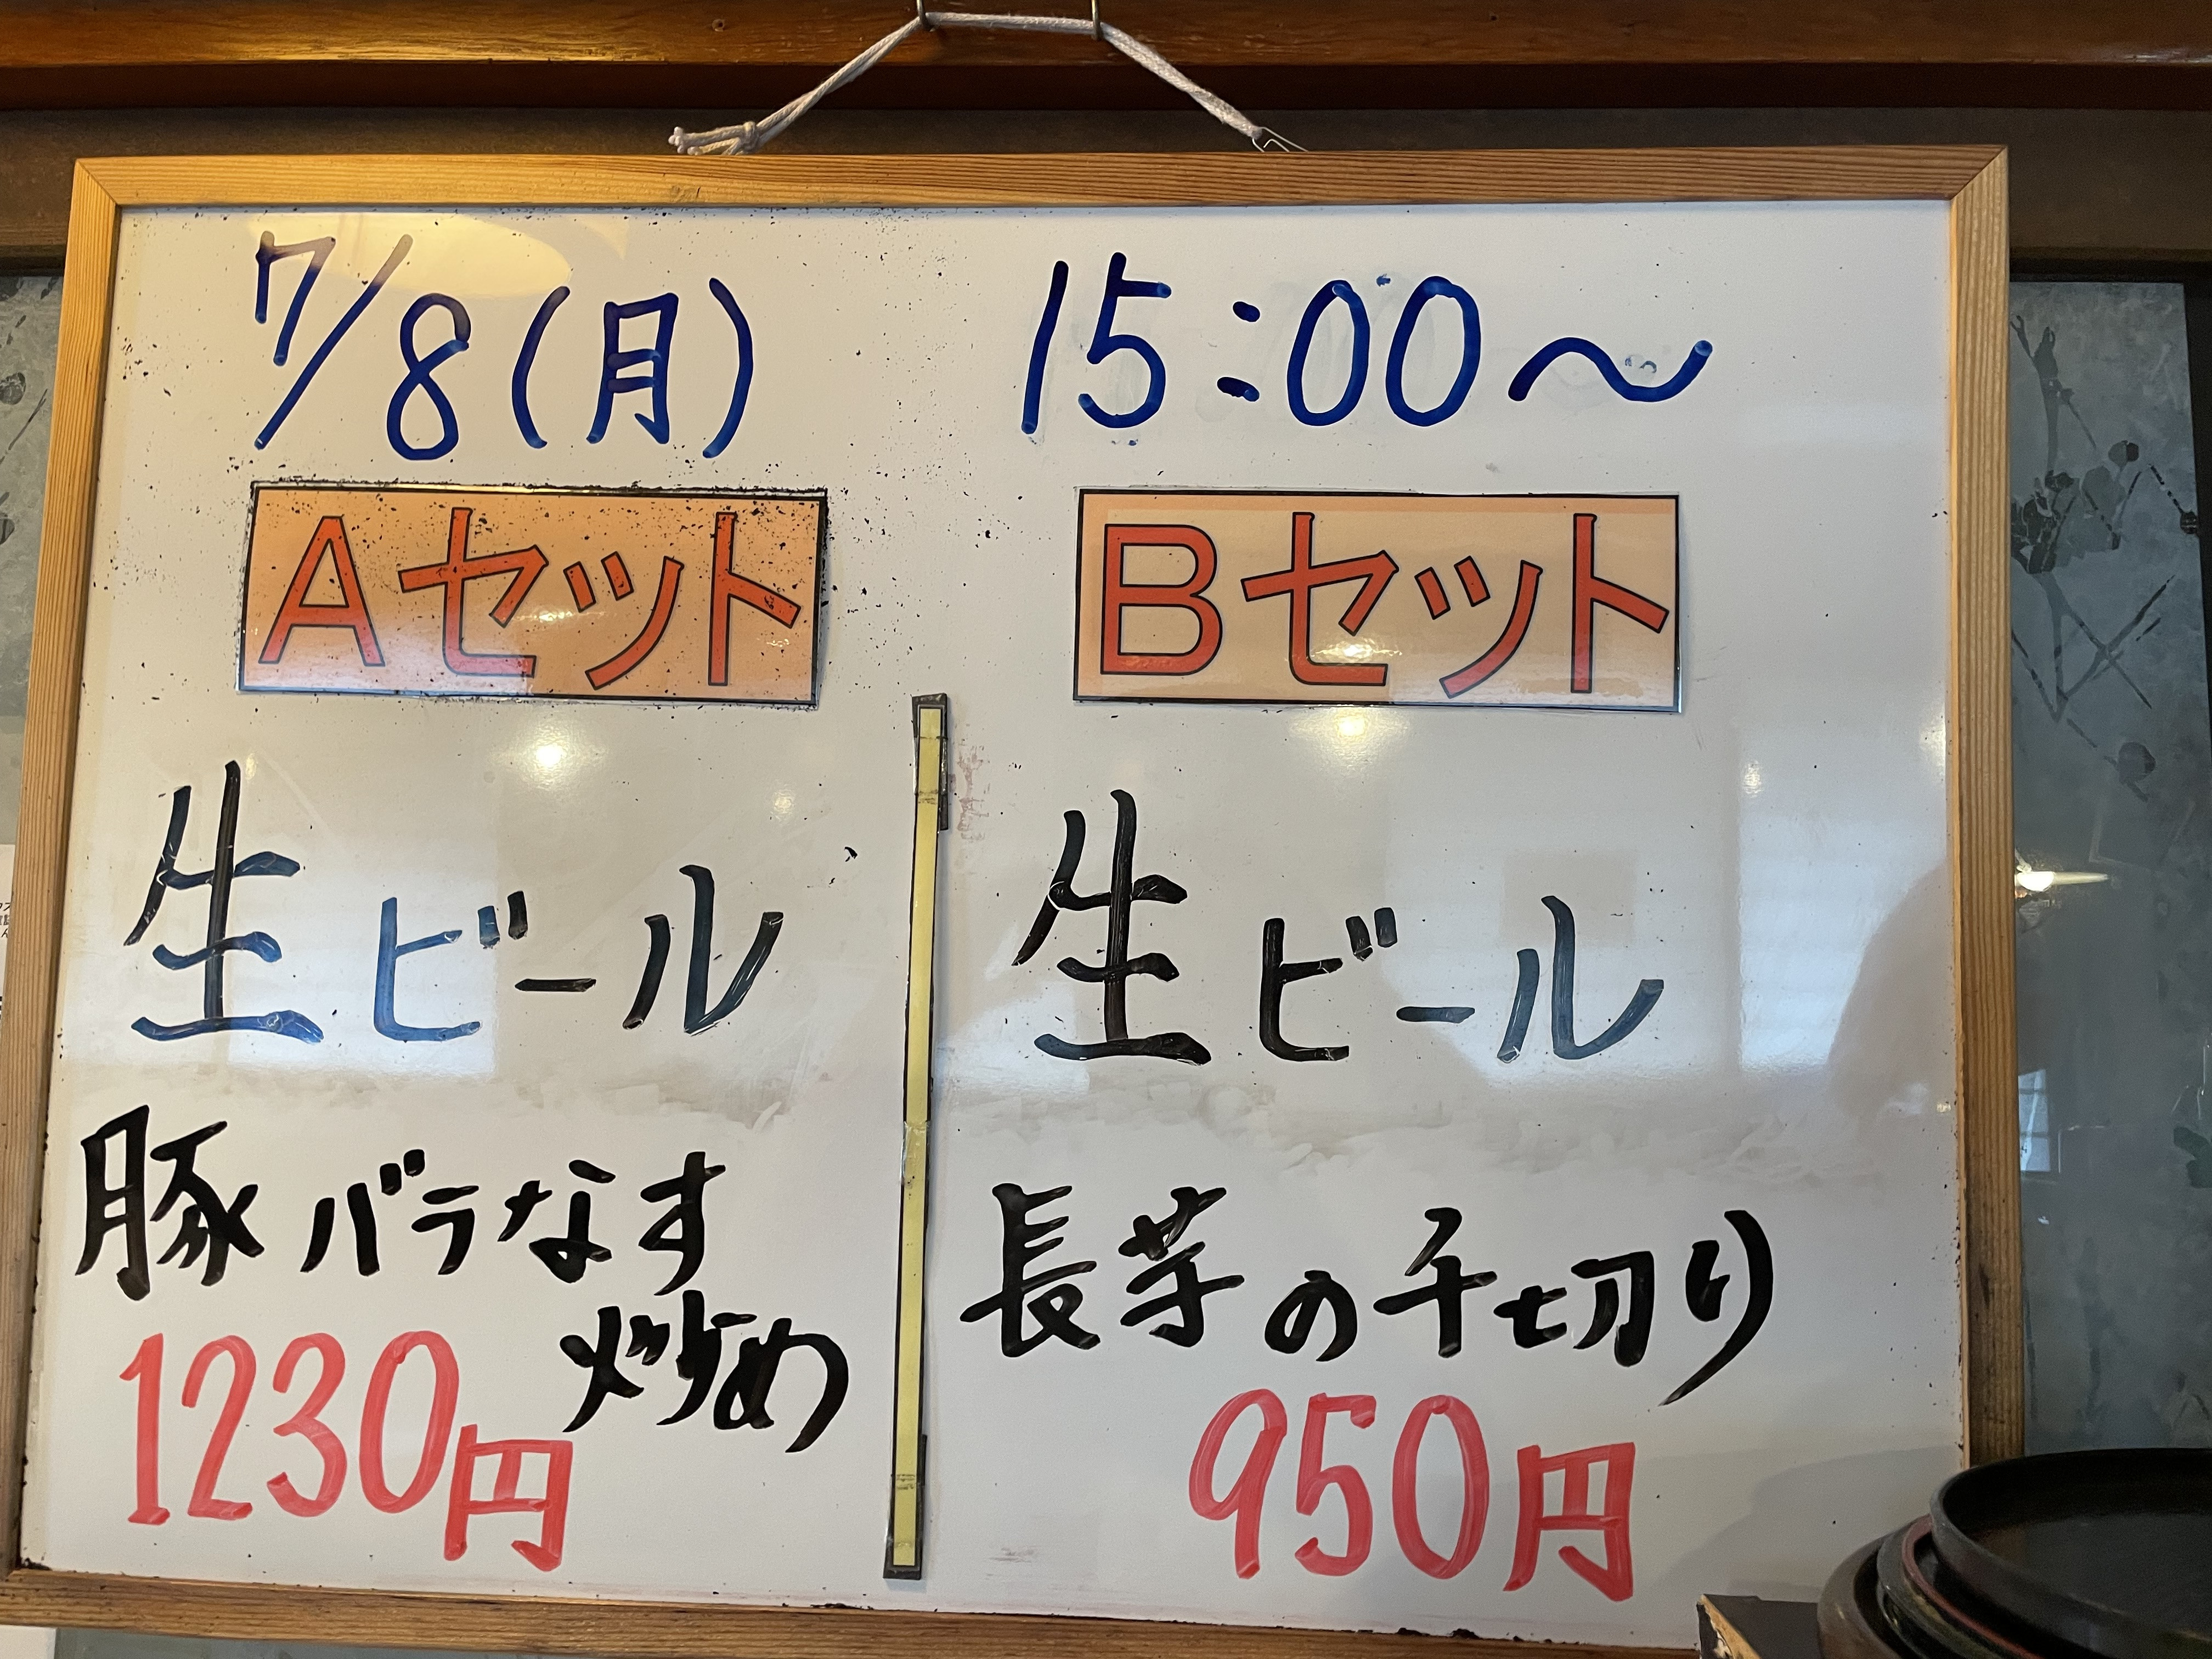 7/8(月) 15:00〜
Aセット
生ビール
豚バラなす
炒め
1230円
Bセット
生ビール
長芋の千切り
950円